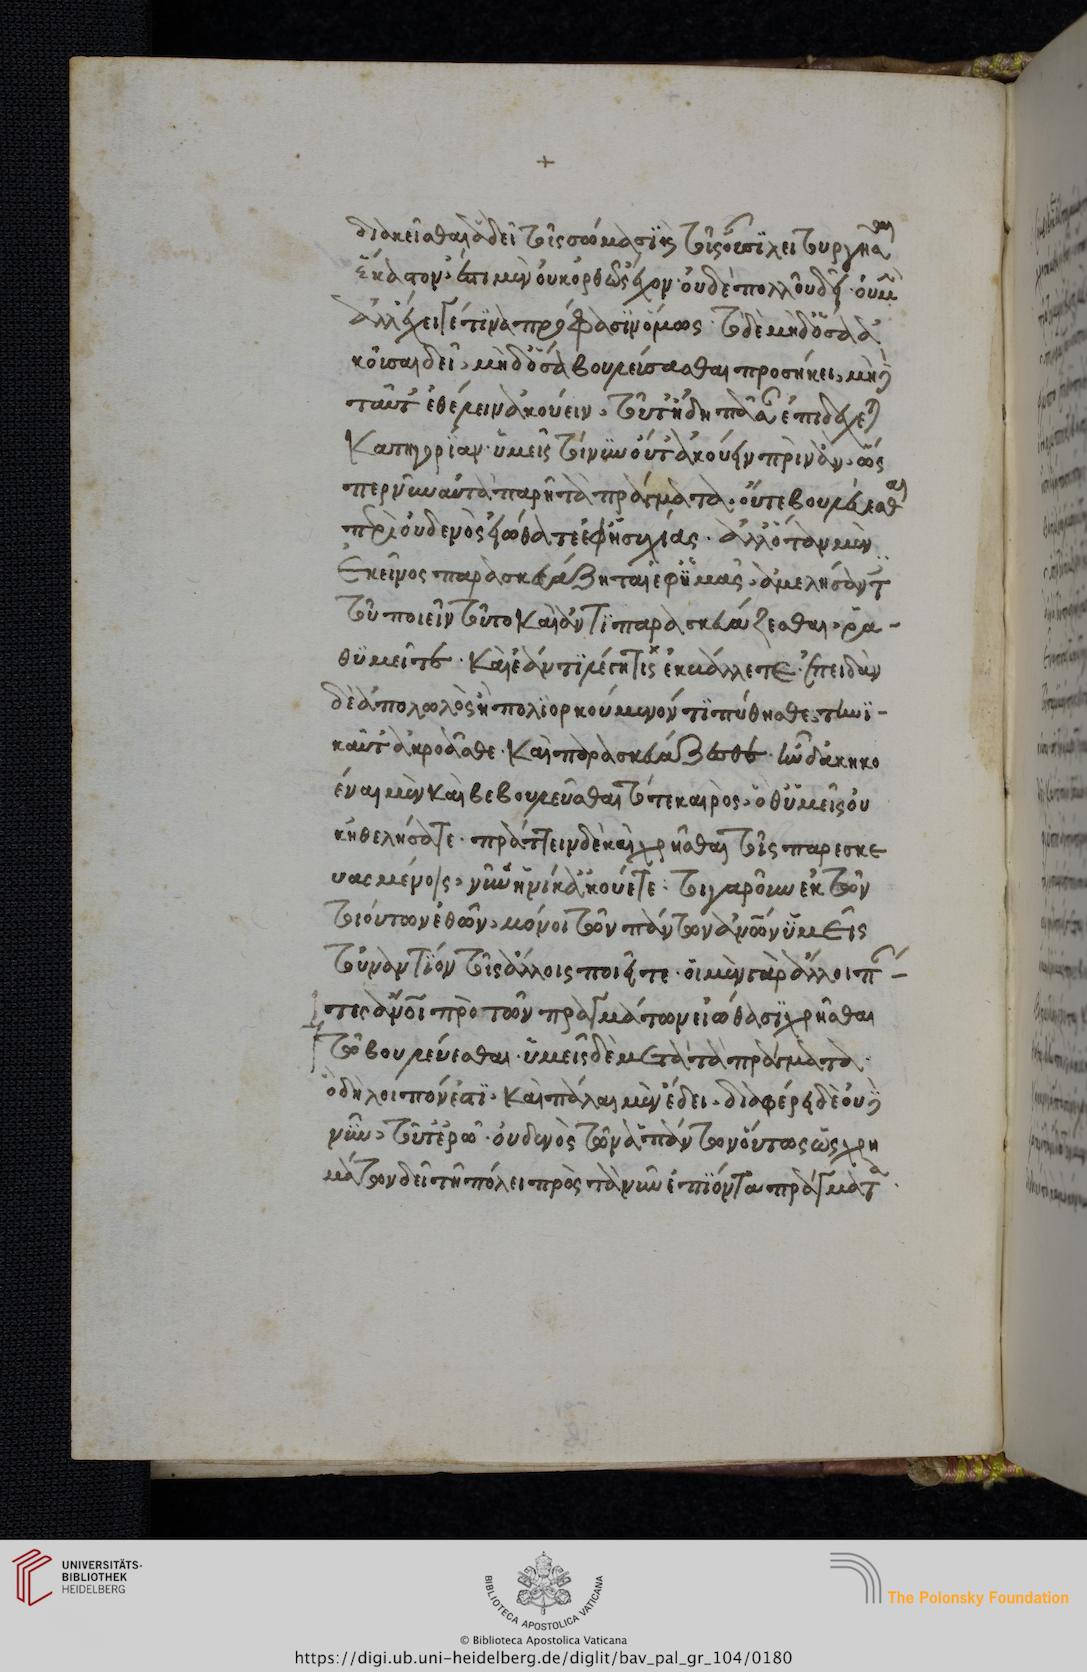 διακεῖσθαι ἃ δεῖ τοῖς σώμασϊ καὶ ταῖς οὐσίαις λειτουργῆσαι
ἕκαστον, ἐστὶ μὲν οὐκ ὀρθῶς ἔχον· οὐδὲ πολλοῦ δεῖ· οὐ μὴν
ἀλλ' ἔχει γέ τϊνα πρόφασϊν ὅμως· τὸ δὲ μηδ' ὅσα ἀ
κοῦσαι δεῖ, μηδ' ὅσα βουλεύσασθαι προσήκει, μηδὲ
ταῦτ' ἐθέλειν ἀκούειν, τοῦτ' ἤδη πᾶσαν ἐπιδέχεται
Κατηγορΐαν· ὑμεῖς τοίνυν οὔτ' ἀκούειν πρὶν ἂν, ὥς
περ νῦν αὐτὰ παρῆ τὰ πράγματα, οὔτε βουλεύεσθαι
περὶ οὐδενὸς εἰώθατε ἐφ' ἡσυχίας· ἀλλ' ὅταν μὲν
Ἐκεῖνος παρασκευάζηται ἐφ' ϋμᾶς, ἀμελήσαντες
τοῦ ποιεῖν τοῦτο Καὶ ἀντϊπαρασκευάζεσθαι, ῥα-
θϋμεῖτε· Καὶ ἐάν τϊ λέγη τὶς ἐκβάλλετε· ἐπειδὰν
δὲ ἀπολωλὸς ἢ πολϊορκούμενόν τϊ πύθησθε, τηνϊ-
καῦτ' ἀκροᾶσθε· Καὶ παρασκευάζεσθε· ἦν δ' ἀκηκο
έναι μὲν καὶ βεβουλεῦσθαι τότε καιρὸς, ὅθ' ὑμεῖς οὐ
κ ἠθελήσατε· πράττειν δὲ καὶ χρῆσθαι τοῖς παρεσκε
υασμένοις, νῦν ἡνίκ' ἀκούετε· τοιγαροῦν ἐκ τῶν
τοιούτων ἐθῶν, μόνοι τῶν πάντων ἀνῶν ὑμεῖς
τοὐναντϊον τοῖς ἄλλοις ποιεῖτε· οἱ μὲν γὰρ ἄλλοι πάν-
τες ἄνοι πρὸ τῶν πραγμάτων εἰώθασϊ χρῆσθαι
τῷ βουλεύεσθαι· ὑμεῖς δὲ μετὰ τὰ πράγματα·
ὃ δὴ λοιπόν ἐστϊ, καὶ πάλαι μὲν ἔδει, διαφεύγει δὲ οὐδὲ
νῦν, τοῦτ' ἐρῶ· οὐδενὸς τῶν ἁπάντων οὕτως ὡς χρη
μάτων δεῖ τῆ πόλει πρὸς τὰ νῦν ἐπϊόντα πράγματα·
UNIVERSITÄTS-
BIBLIOTHEK
HEIDELBERG
BIBLIOTECA APOSTOLICA VATICANA
The Polonsky Foundation
© Biblioteca Apostolica Vaticana
https://digi.ub.uni-heidelberg.de/diglit/bav_pal_gr_104/0180